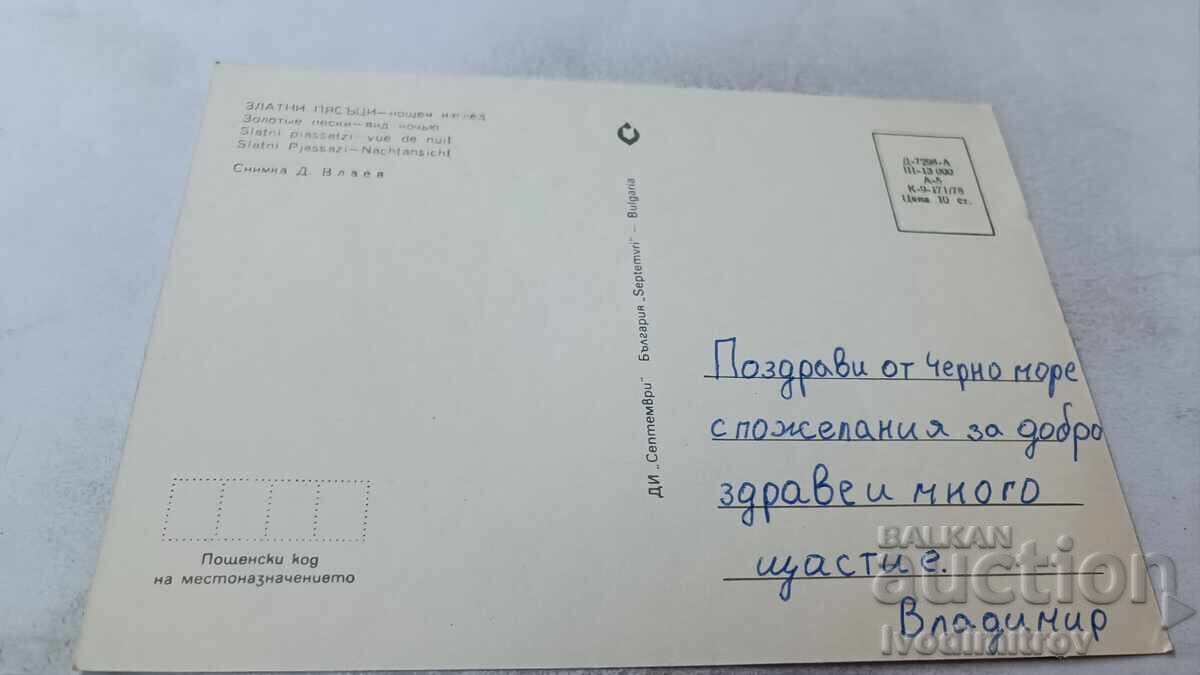 ЗЛАТНИ ПЯСЪЦИ—нощен изглед
Золотые пески—вид ночью
Slatni piassatzi—vue de nuit
Slatni Pjassazi—Nachtansicht
Снимка Д. Влаев
Пощенски код
на местоназначението
ДИ „Септември" България „Septemvri" — Bulgaria
Д-7298-А
III-13 000
А-5
К-9-171/78
Цена 10 ст.
Поздрави от Черно море
с пожелания за добро
здраве и много
щастие.
Владимир
BALKAN
auction
ivodimitrov